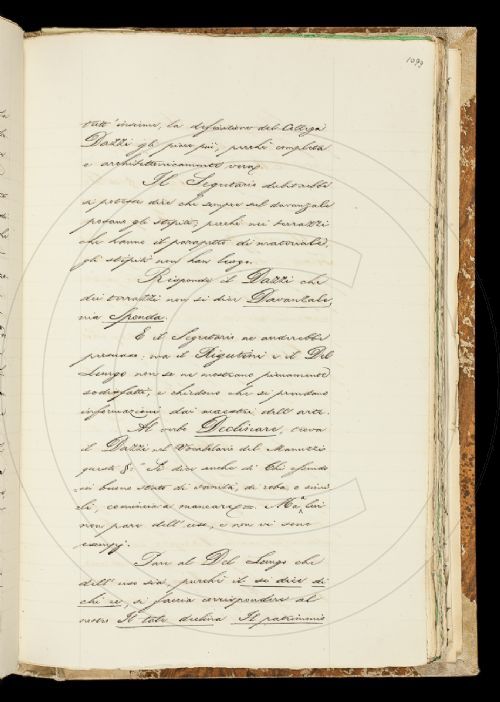 1099
tutt'insieme, la definizione del Collega
Dazzi gli piace più, perchè completa
e architettonicamente vera.
Il Segretario dubiterebbe
di potersi dire che sempre sul davanzale
posano gli stipiti; perchè nei terrazzi
che hanno il parapetto di materiale,
gli stipiti non han luogo.
Risponde il Dazzi che
dei terrazzi non si dice Davanzale,
ma Sponda.
E il Segretario ne anderebbe
persuaso; ma il Rigutini e il Del
Lungo non se ne mostrano pienamente
sodisfatti, e chiedono che si prendano
informazioni dai maestri dell'arte.
Al verbo Declinare, trova
il Dazzi nel Vocabolario del Manuzzi
questo §: "Si dice anche di Chi essendo
in buono stato di sanità, di roba, o simi-
li, comincia a mancare". Ma a lui
non pare dell'uso, e non vi sono
esempj.
Pare al Del Lungo che
dell'uso sia, purchè il si dice di
chi ec., si faccia corrispondere al
nostro Il tale declina Il patrimonio